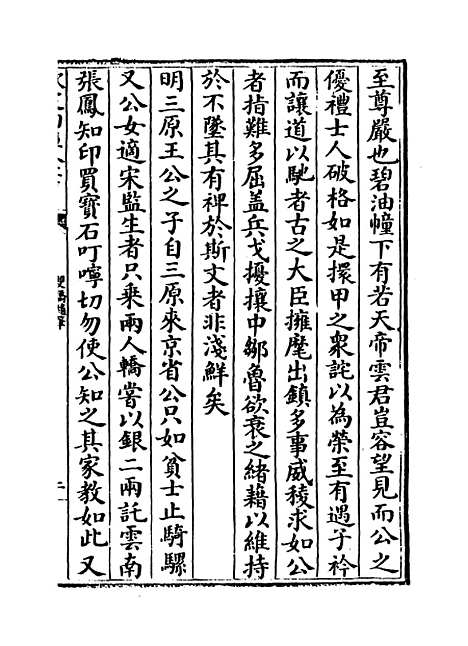 至尊嚴也碧油幢下有若天帝雲君豈容望見而公之
優禮士人破格如是擐甲之衆詫以為榮至有遇子衿
而讓道以馳者古之大臣擁麾出鎮多事威稜求如公
者指難多屈盖兵戈擾攘中鄒魯欲衰之緒藉以維持
於不墜其有裨於斯文者非淺鮮矣
明三原王公之子自三原來京省公只如貧士止騎騾
又公女適宋監生者只乗兩人轎嘗以銀二兩託雲南
張鳳知印買寶石叮嚀切勿使公知之其家教如此又